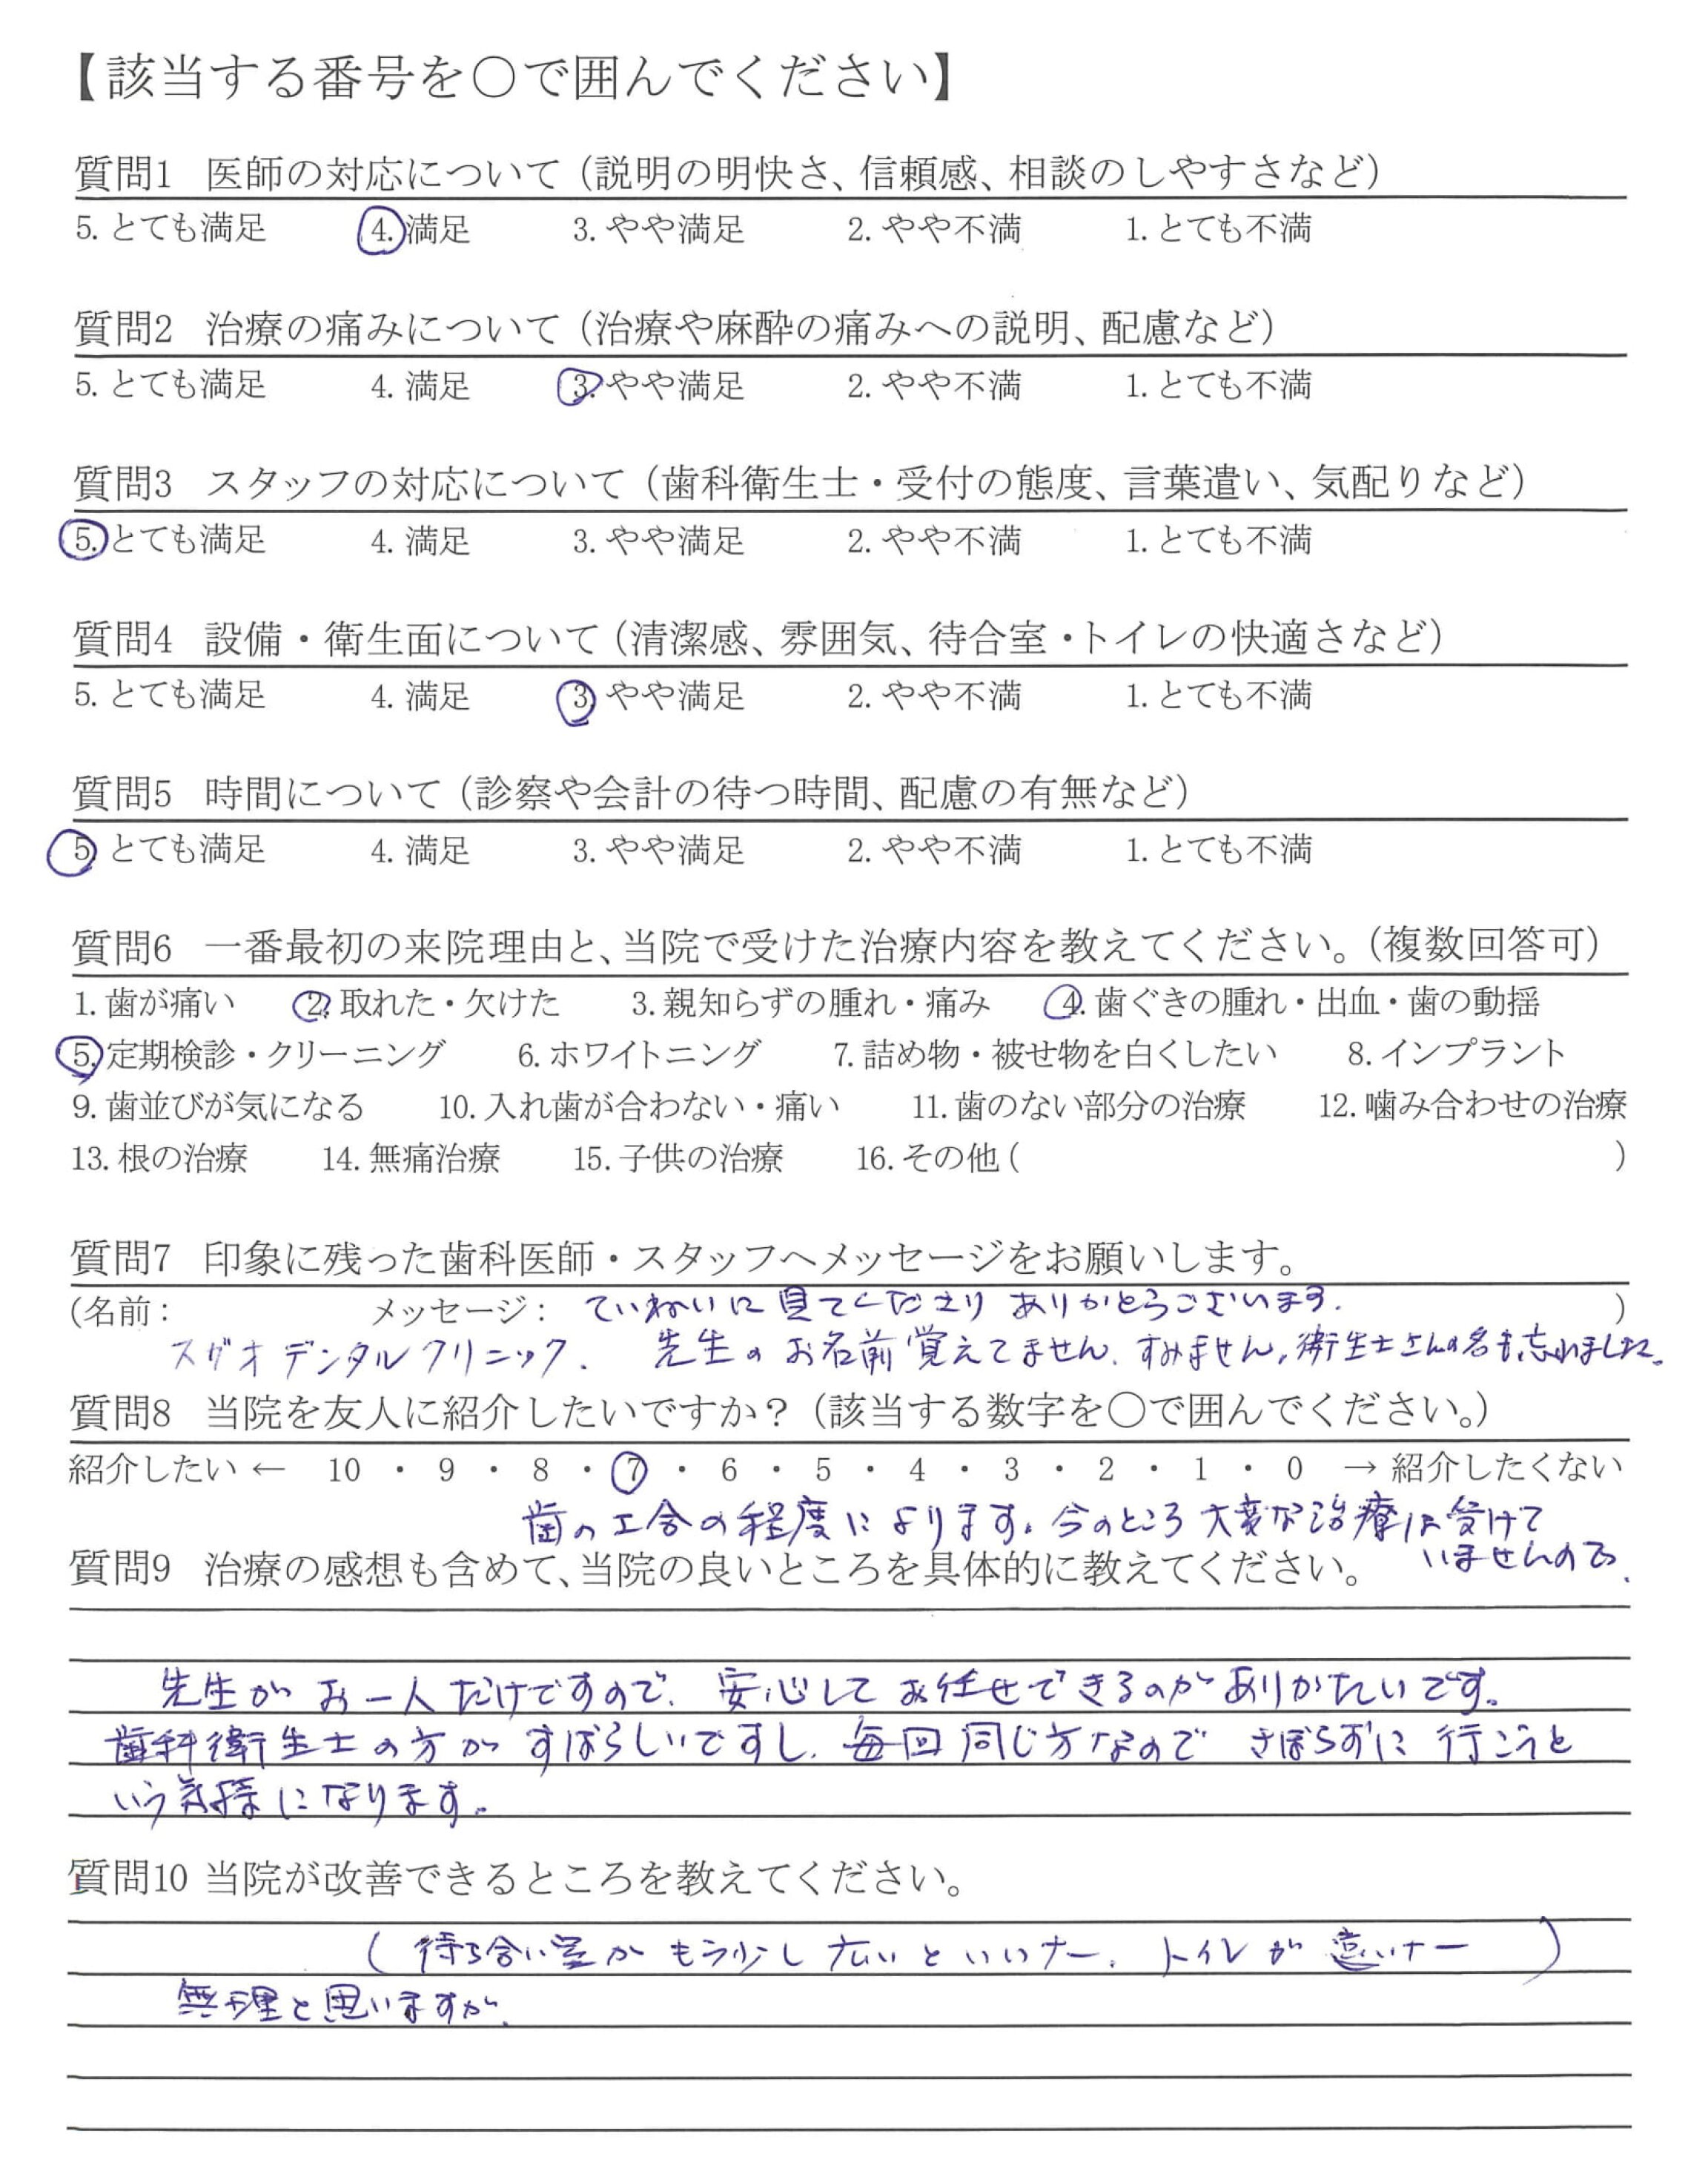 【該当する番号を○で囲んでください】
質問1 医師の対応について（説明の明快さ、信頼感、相談のしやすさなど）
5. とても満足 4. 満足 3. やや満足 2. やや不満 1. とても不満
質問2 治療の痛みについて（治療や麻酔の痛みへの説明、配慮など）
5. とても満足 4. 満足 3. やや満足 2. やや不満 1. とても不満
質問3 スタッフの対応について（歯科衛生士・受付の態度、言葉遣い、気配りなど）
5. とても満足 4. 満足 3. やや満足 2. やや不満 1. とても不満
質問4 設備・衛生面について（清潔感、雰囲気、待合室・トイレの快適さなど）
5. とても満足 4. 満足 3. やや満足 2. やや不満 1. とても不満
質問5 時間について（診察や会計の待つ時間、配慮の有無など）
5. とても満足 4. 満足 3. やや満足 2. やや不満 1. とても不満
質問6 一番最初の来院理由と、当院で受けた治療内容を教えてください。（複数回答可）
1. 歯が痛い 2. 取れた・欠けた 3. 親知らずの腫れ・痛み 4. 歯ぐきの腫れ・出血・歯の動揺
5. 定期検診・クリーニング 6. ホワイトニング 7. 詰め物・被せ物を白くしたい 8. インプラント
9. 歯並びが気になる 10. 入れ歯が合わない・痛い 11. 歯のない部分の治療 12. 噛み合わせの治療
13. 根の治療 14. 無痛治療 15. 子供の治療 16. その他（ ）
質問7 印象に残った歯科医師・スタッフへメッセージをお願いします。
（名前： メッセージ： ていねいに見てくださりありがとうございます. ）
スガオデンタルクリニック. 先生のお名前覚えてません. すみません, 衛生士さんの名も忘れました.
質問8 当院を友人に紹介したいですか？（該当する数字を○で囲んでください。）
紹介したい ← 10 ・ 9 ・ 8 ・ 7 ・ 6 ・ 5 ・ 4 ・ 3 ・ 2 ・ 1 ・ 0 → 紹介したくない
歯の工合の程度によります。今のところ大変な治療は受けて
いませんので.
質問9 治療の感想も含めて、当院の良いところを具体的に教えてください。
先生がお一人だけですので、安心してお任せできるのがありがたいです。
歯科衛生士の方がすばらしいですし、毎回同じ方なのでさぼらずに行こうと
いう気持になります。
質問10 当院が改善できるところを教えてください。
（待ち合い室がもう少し広いといいナー. トイレが遠いナー）
無理と思いますが.